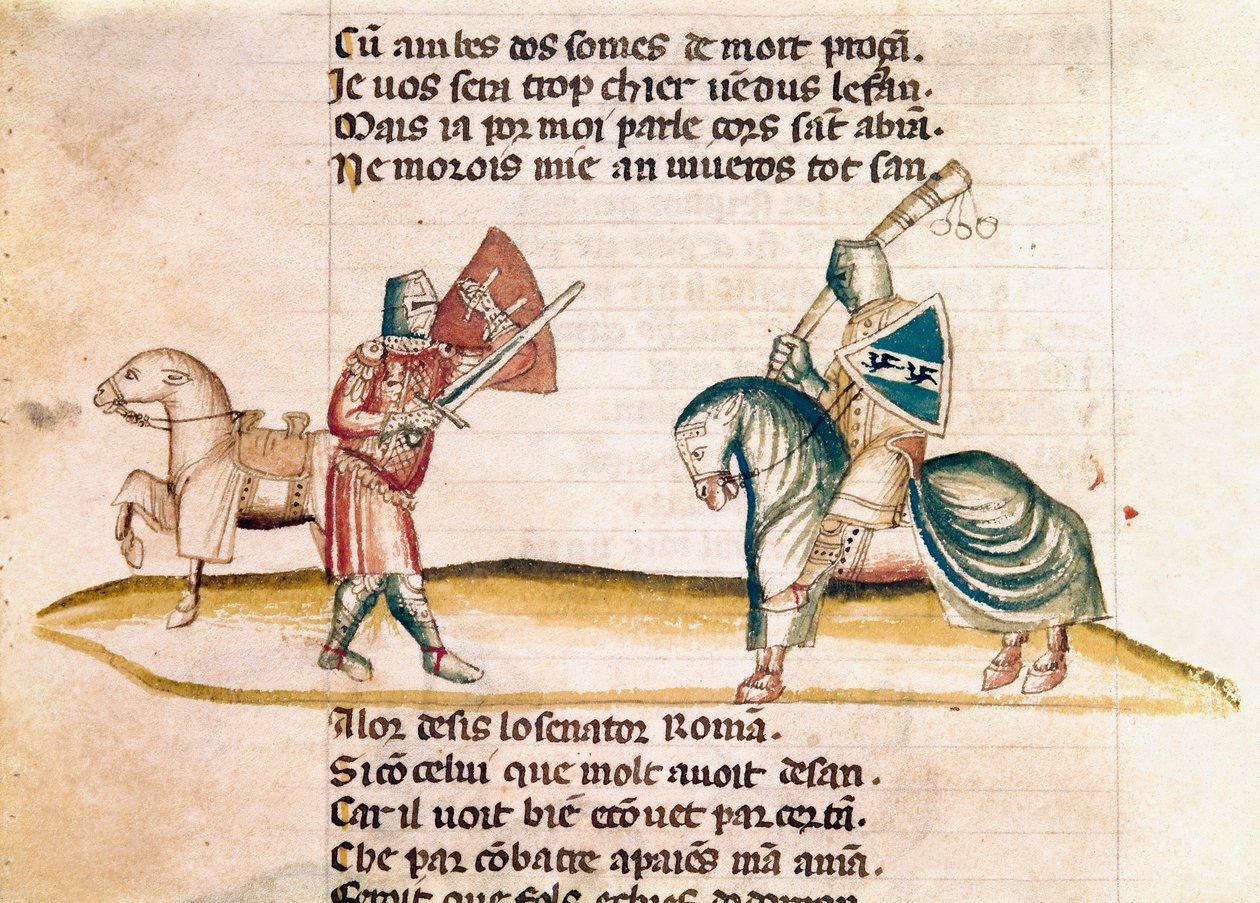 Cū ambes dos somes de mort proçā.
Je uos sera trop chier uēdus lefan.
Mais ia por moi parle cors sāt abiā.
Ne morois mie an uiueros tot san.
Alor desis lo senator Romā.
Si cō celui que molt auoit desan.
Car il uoit biē ecōuet par certā.
Che par cōbatre apaiēs mā amā.